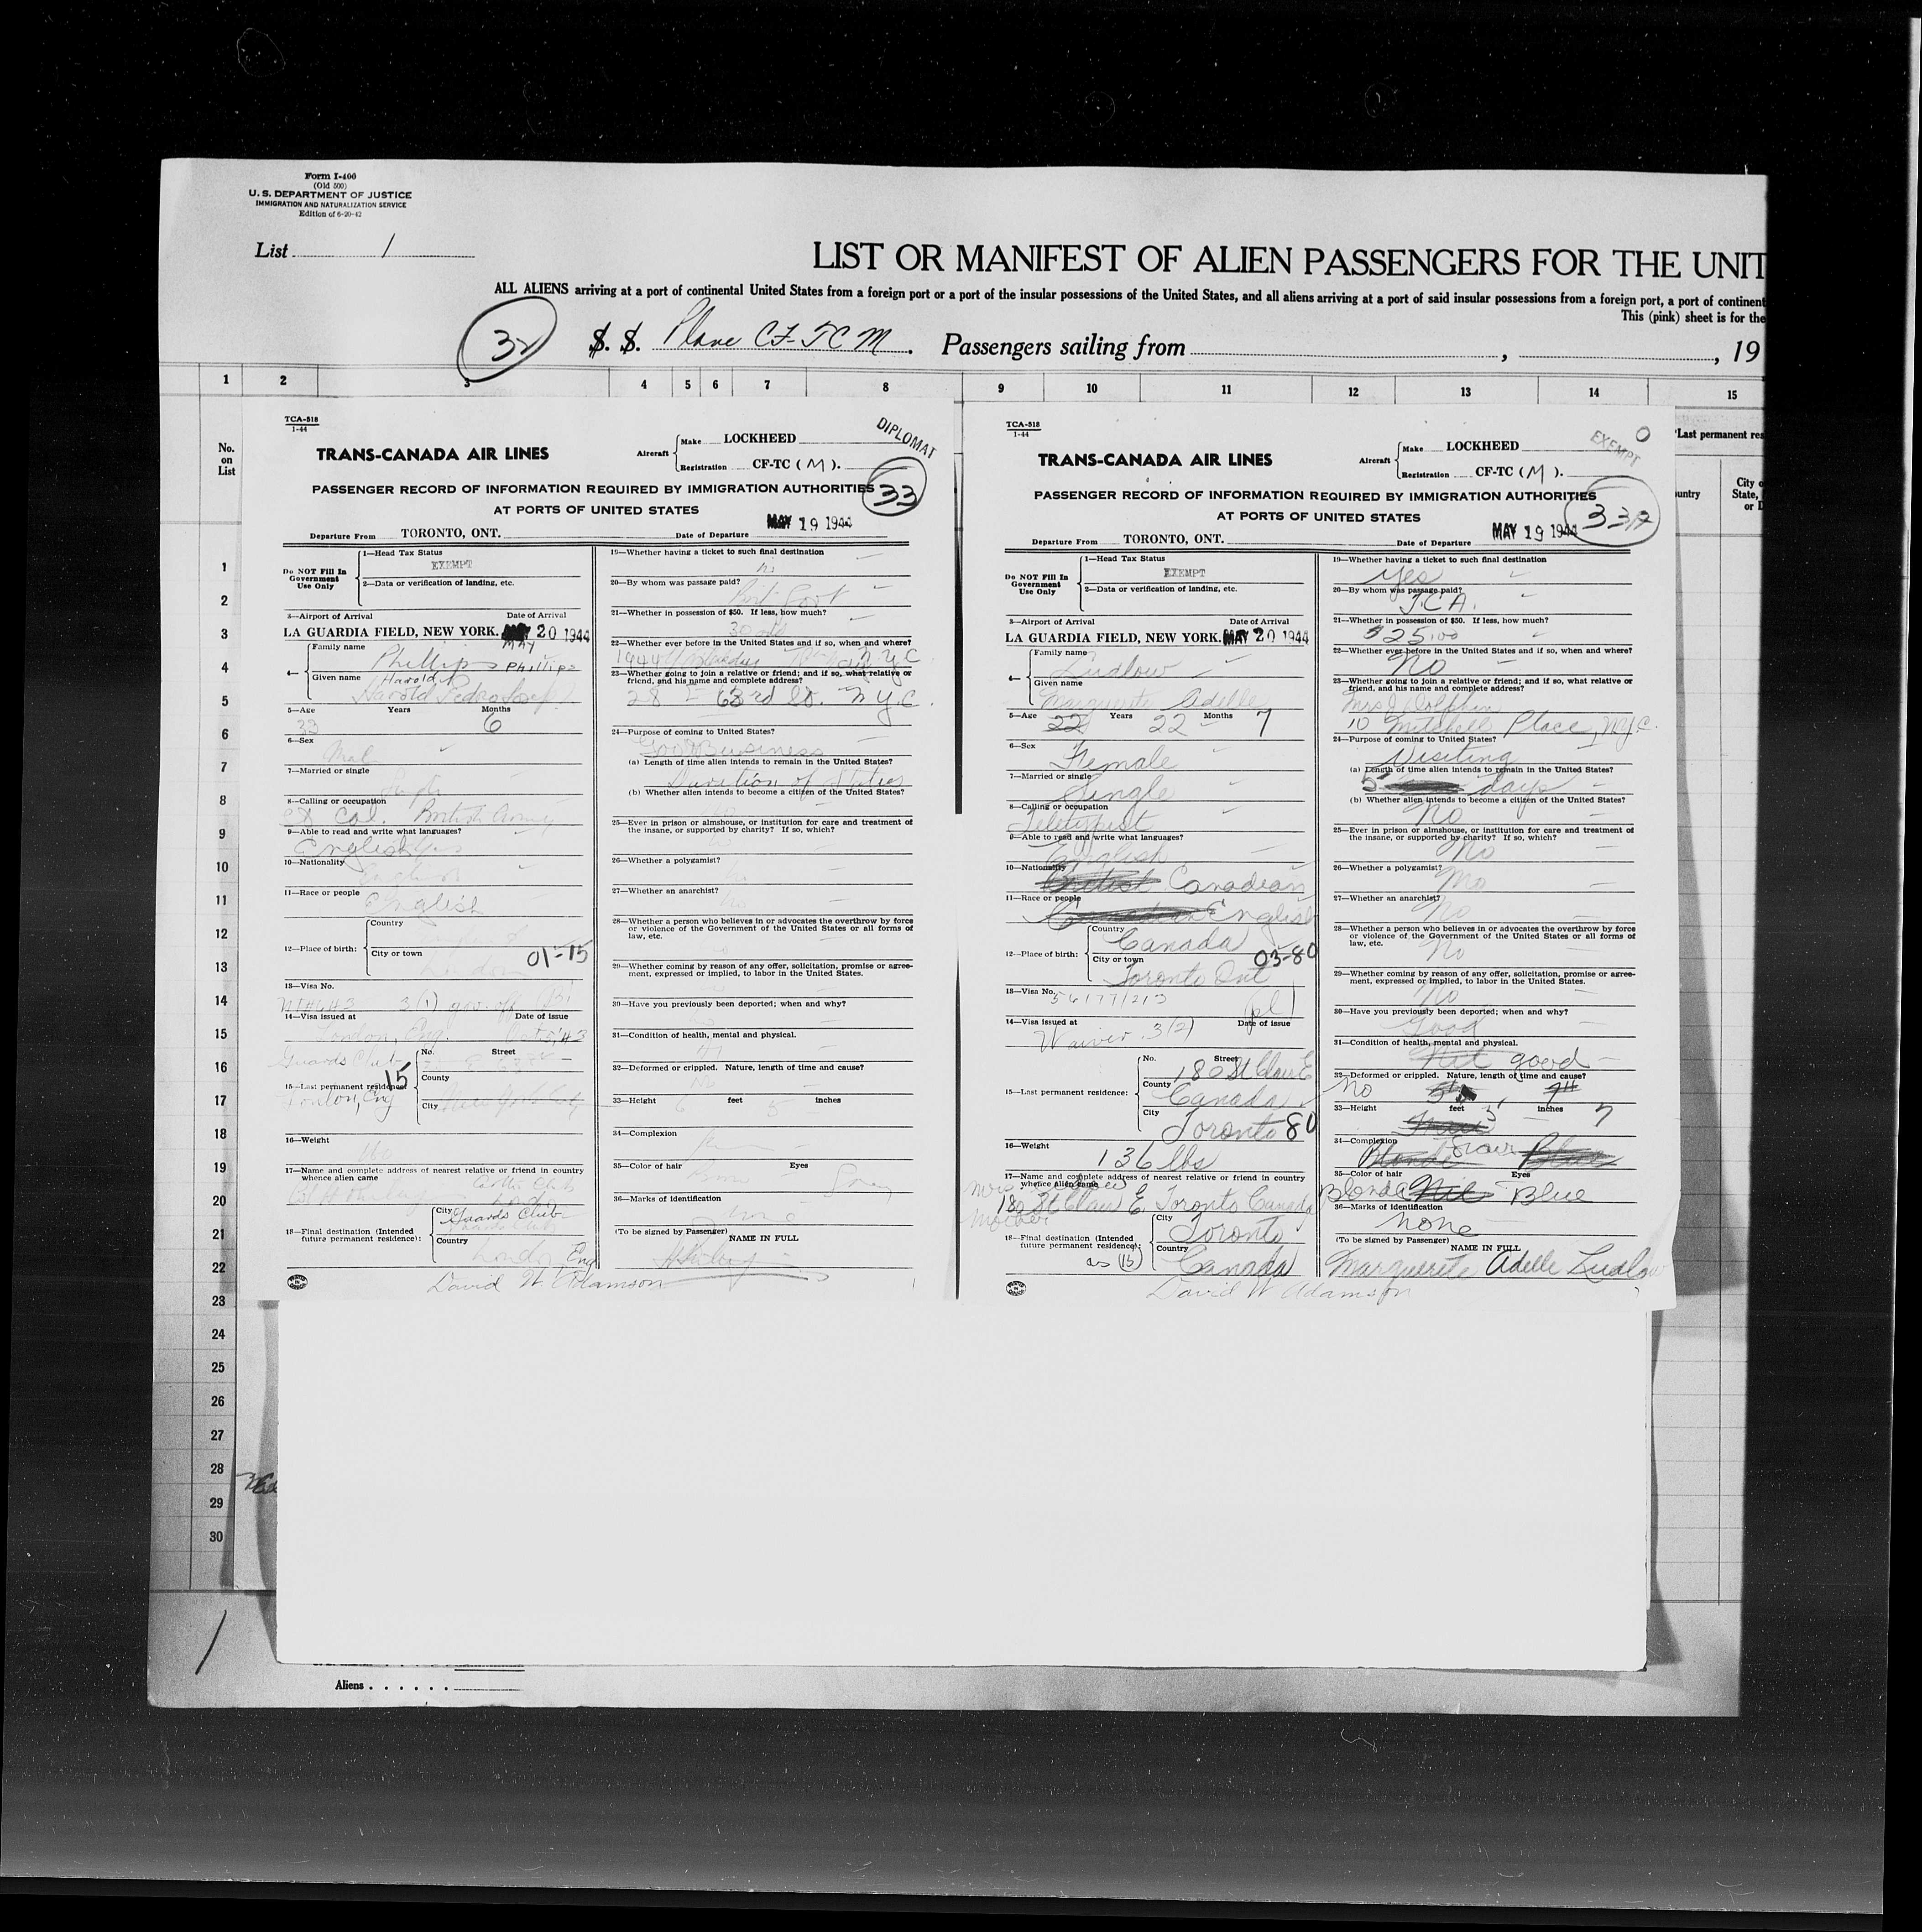 Form I-400
(Old 500)
U. S. DEPARTMENT OF JUSTICE
IMMIGRATION AND NATURALIZATION SERVICE
Edition of 6-20-42
List 1
LIST OR MANIFEST OF ALIEN PASSENGERS FOR THE UNIT
ALL ALIENS arriving at a port of continental United States from a foreign port or a port of the insular possessions of the United States, and all aliens arriving at a port of said insular possessions from a foreign port, a port of continent
This (pink) sheet is for the
32 S. S. Plane CF-TCM. Passengers sailing from , , 19
1 2 3 4 5 6 7 8 9 10 11 12 13 14 15
No.
on
List
1
2
3
4
5
6
7
8
9
10
11
12
13
14
15
16
17
18
19
20
21
22
23
24
25
26
27
28
29
30
TCA-518
1-44
TRANS-CANADA AIR LINES
Aircraft
Make LOCKHEED
Registration CF-TC (M).
DIPLOMAT
33
PASSENGER RECORD OF INFORMATION REQUIRED BY IMMIGRATION AUTHORITIES
AT PORTS OF UNITED STATES
Departure From TORONTO, ONT. Date of Departure MAY 19 1944
Do NOT Fill In
Government
Use Only
1—Head Tax Status
EXEMPT
2—Data or verification of landing, etc.
3—Airport of Arrival Date of Arrival
LA GUARDIA FIELD, NEW YORK. MAY 20 1944
MAY
4— Family name
Phillips PHILLIPS
Given name Harold P
Harold Pedro
5—Age Years Months
33 6
6—Sex
Male
7—Married or single
8—Calling or occupation
Lt Col. British Army
9—Able to read and write what languages?
English Yes
10—Nationality
English
11—Race or people
English
12—Place of birth: Country
City or town
London 01-15
13—Visa No.
3(1) gov. off
14—Visa issued at Date of issue
London, Eng.
Guards Club
15—Last permanent residence: 15
London, Eng
No. Street
County
City New York City
16—Weight
160
17—Name and complete address of nearest relative or friend in country
whence alien came
18—Final destination (Intended
future permanent residence):
City Guards Club
Country
London Eng
David W. Adamson
19—Whether having a ticket to such final destination
no
20—By whom was passage paid?
Brit Govt
21—Whether in possession of $50. If less, how much?
30
22—Whether ever before in the United States and if so, when and where?
1944 NYC
23—Whether going to join a relative or friend; and if so, what relative or
friend, and his name and complete address?
28 E 63rd St. N.Y.C.
24—Purpose of coming to United States?
Govt Business
(a) Length of time alien intends to remain in the United States?
Duration of Duties
(b) Whether alien intends to become a citizen of the United States?
25—Ever in prison or almshouse, or institution for care and treatment of
the insane, or supported by charity? If so, which?
26—Whether a polygamist?
27—Whether an anarchist?
no
28—Whether a person who believes in or advocates the overthrow by force
or violence of the Government of the United States or all forms of
law, etc.
29—Whether coming by reason of any offer, solicitation, promise or agree-
ment, expressed or implied, to labor in the United States.
30—Have you previously been deported; when and why?
31—Condition of health, mental and physical.
32—Deformed or crippled. Nature, length of time and cause?
No
33—Height 6 feet 5 inches
34—Complexion
35—Color of hair Eyes
Grey
36—Marks of identification
none
(To be signed by Passenger) NAME IN FULL
TCA-518
1-44
TRANS-CANADA AIR LINES
Aircraft
Make LOCKHEED
Registration CF-TC (M).
EXEMPT
0
33A
PASSENGER RECORD OF INFORMATION REQUIRED BY IMMIGRATION AUTHORITIES
AT PORTS OF UNITED STATES
Departure From TORONTO, ONT. Date of Departure MAY 19 1944
Do NOT Fill In
Government
Use Only
1—Head Tax Status
EXEMPT
2—Data or verification of landing, etc.
3—Airport of Arrival Date of Arrival
LA GUARDIA FIELD, NEW YORK. MAY 20 1944
4— Family name
Ludlow
Given name
Marguerite Adelle
5—Age 22 Years 22 Months 7
6—Sex
Female
7—Married or single
Single
8—Calling or occupation
Teletypist
9—Able to read and write what languages?
English
10—Nationality
British Canadian
11—Race or people
Canadian English
12—Place of birth: Country
Canada
City or town 03-80
Toronto Ont
13—Visa No.
56177/213 (pl)
14—Visa issued at Date of issue
Waiver 3(2)
15—Last permanent residence:
No. Street
180 St Clair E
County
Canada
City
Toronto 80
16—Weight
136 lbs
17—Name and complete address of nearest relative or friend in country
whence alien came
Mrs
180 St Clair E. Toronto Canada
Mother
18—Final destination (Intended
future permanent residence):
as (15)
City
Toronto
Country
Canada
David W Adamson
19—Whether having a ticket to such final destination
Yes
20—By whom was passage paid?
T.C.A.
21—Whether in possession of $50. If less, how much?
$25.00
22—Whether ever before in the United States and if so, when and where?
No
23—Whether going to join a relative or friend; and if so, what relative or
friend, and his name and complete address?
Mrs J Dolphin
10 Mitchell Place, N.Y.C.
24—Purpose of coming to United States?
Visiting
(a) Length of time alien intends to remain in the United States?
5 days
(b) Whether alien intends to become a citizen of the United States?
No
25—Ever in prison or almshouse, or institution for care and treatment of
the insane, or supported by charity? If so, which?
No
26—Whether a polygamist?
No
27—Whether an anarchist?
No
28—Whether a person who believes in or advocates the overthrow by force
or violence of the Government of the United States or all forms of
law, etc.
No
29—Whether coming by reason of any offer, solicitation, promise or agree-
ment, expressed or implied, to labor in the United States.
No
30—Have you previously been deported; when and why?
Good
31—Condition of health, mental and physical.
Nil good
32—Deformed or crippled. Nature, length of time and cause?
No
33—Height feet 5 inches 7
34—Complexion
Blonde Blue
35—Color of hair Eyes
Blonde Nil Blue
36—Marks of identification
none
(To be signed by Passenger) NAME IN FULL
Marguerite Adelle Ludlow
Last permanent res
untry
City o
State,
or D
1
Aliens